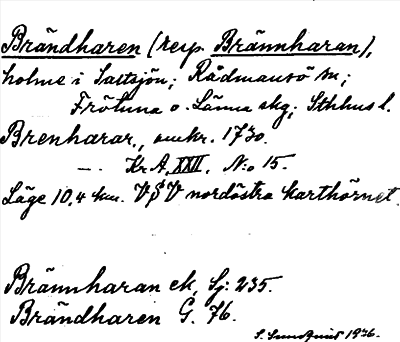 Brändharen (resp. Brännharan),
holme i Saltsjön; Rådmansö sn;
Frötuna o. Länna skg; Sthlms l.
Brenharar, omkr. 1730.
—. Kr.A. XXII. N:o 15.
Läge 10,4 km. VSV nordöstra karthörnet.
Brännharan ek, Sj: 235.
Brändharen G. 76.
S. Sundqvist 1936.